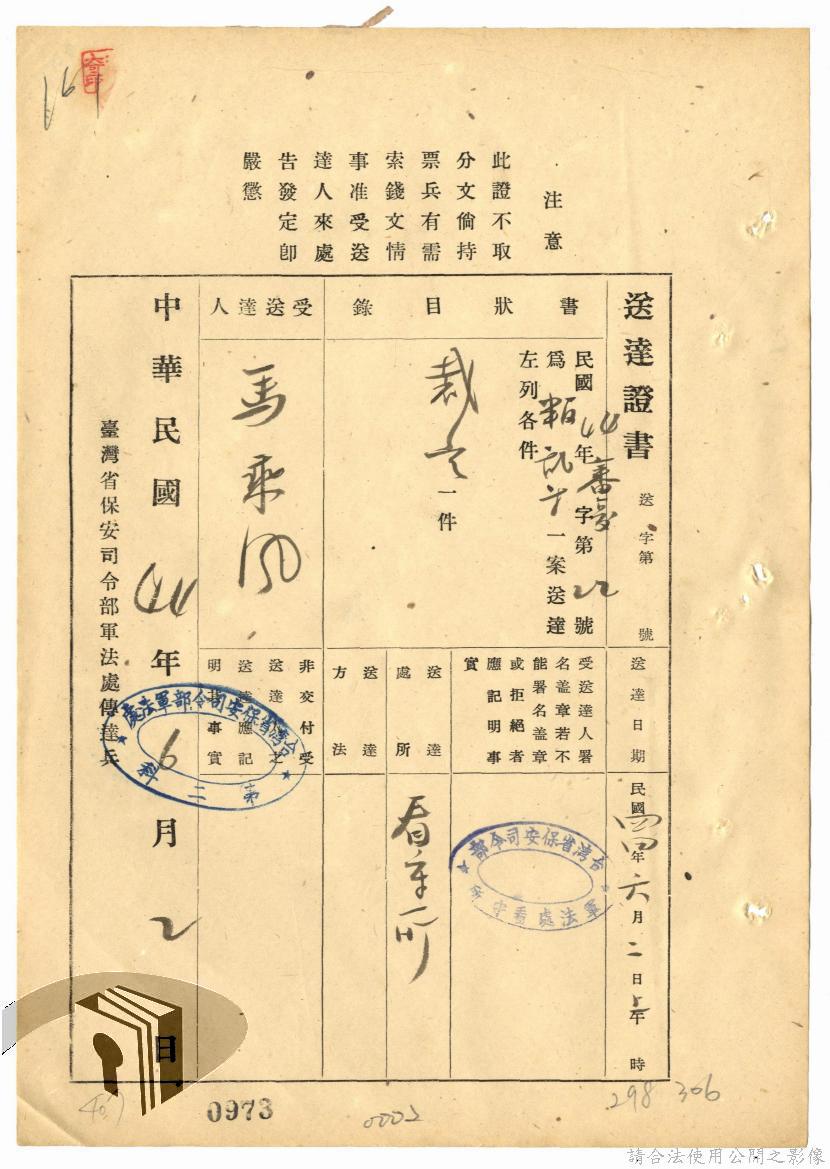 注意
此證不取
分文倘持
票兵有需
索錢文情
事准受送
達人來處
告發定卽
嚴懲
送達證書
送 字第 號
送達日期
民國四四年六月二日上午 時
書狀目錄
民國44年審 字第22號
爲 叛亂 一案送達
左列各件
裁定一件
受送達人署
名盖章若不
能署名盖章
或拒絕者
應記明事
實
台灣省保安司令部
軍法處看守所
送達處所
看守所
送達方法
受送達人
馬乘風
非交付受
送達人之
送達應記
明其事實
中華民國44年6月2日
台灣省保安司令部軍法處
第二科
臺灣省保安司令部軍法處傳達兵
16
0973
0002
298 306
請合法使用公開之影像